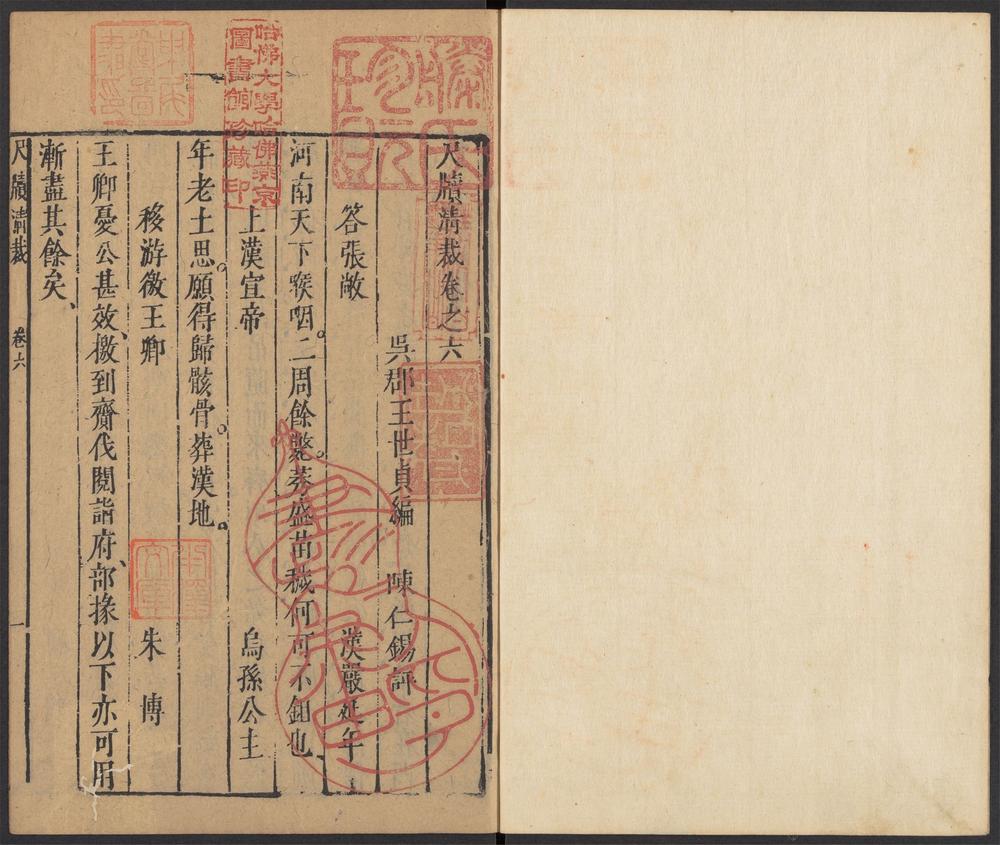 尺牘清裁卷之六
吳郡王世貞編 陳仁錫評
答張敞 漢嚴延年
河南天下喉咽。二周餘斃。莠盛苗穢何可不鉏也
上漢宣帝 烏孫公主
年老土思。願得歸骸骨。葬漢地。
移游徼王卿 朱博
王卿憂公甚效、檄到齎伐閱詣府、部掾以下亦可用
漸盡其餘矣、
尺牘清裁 卷六 一
哈佛大學哈佛燕京
圖書館珍藏印